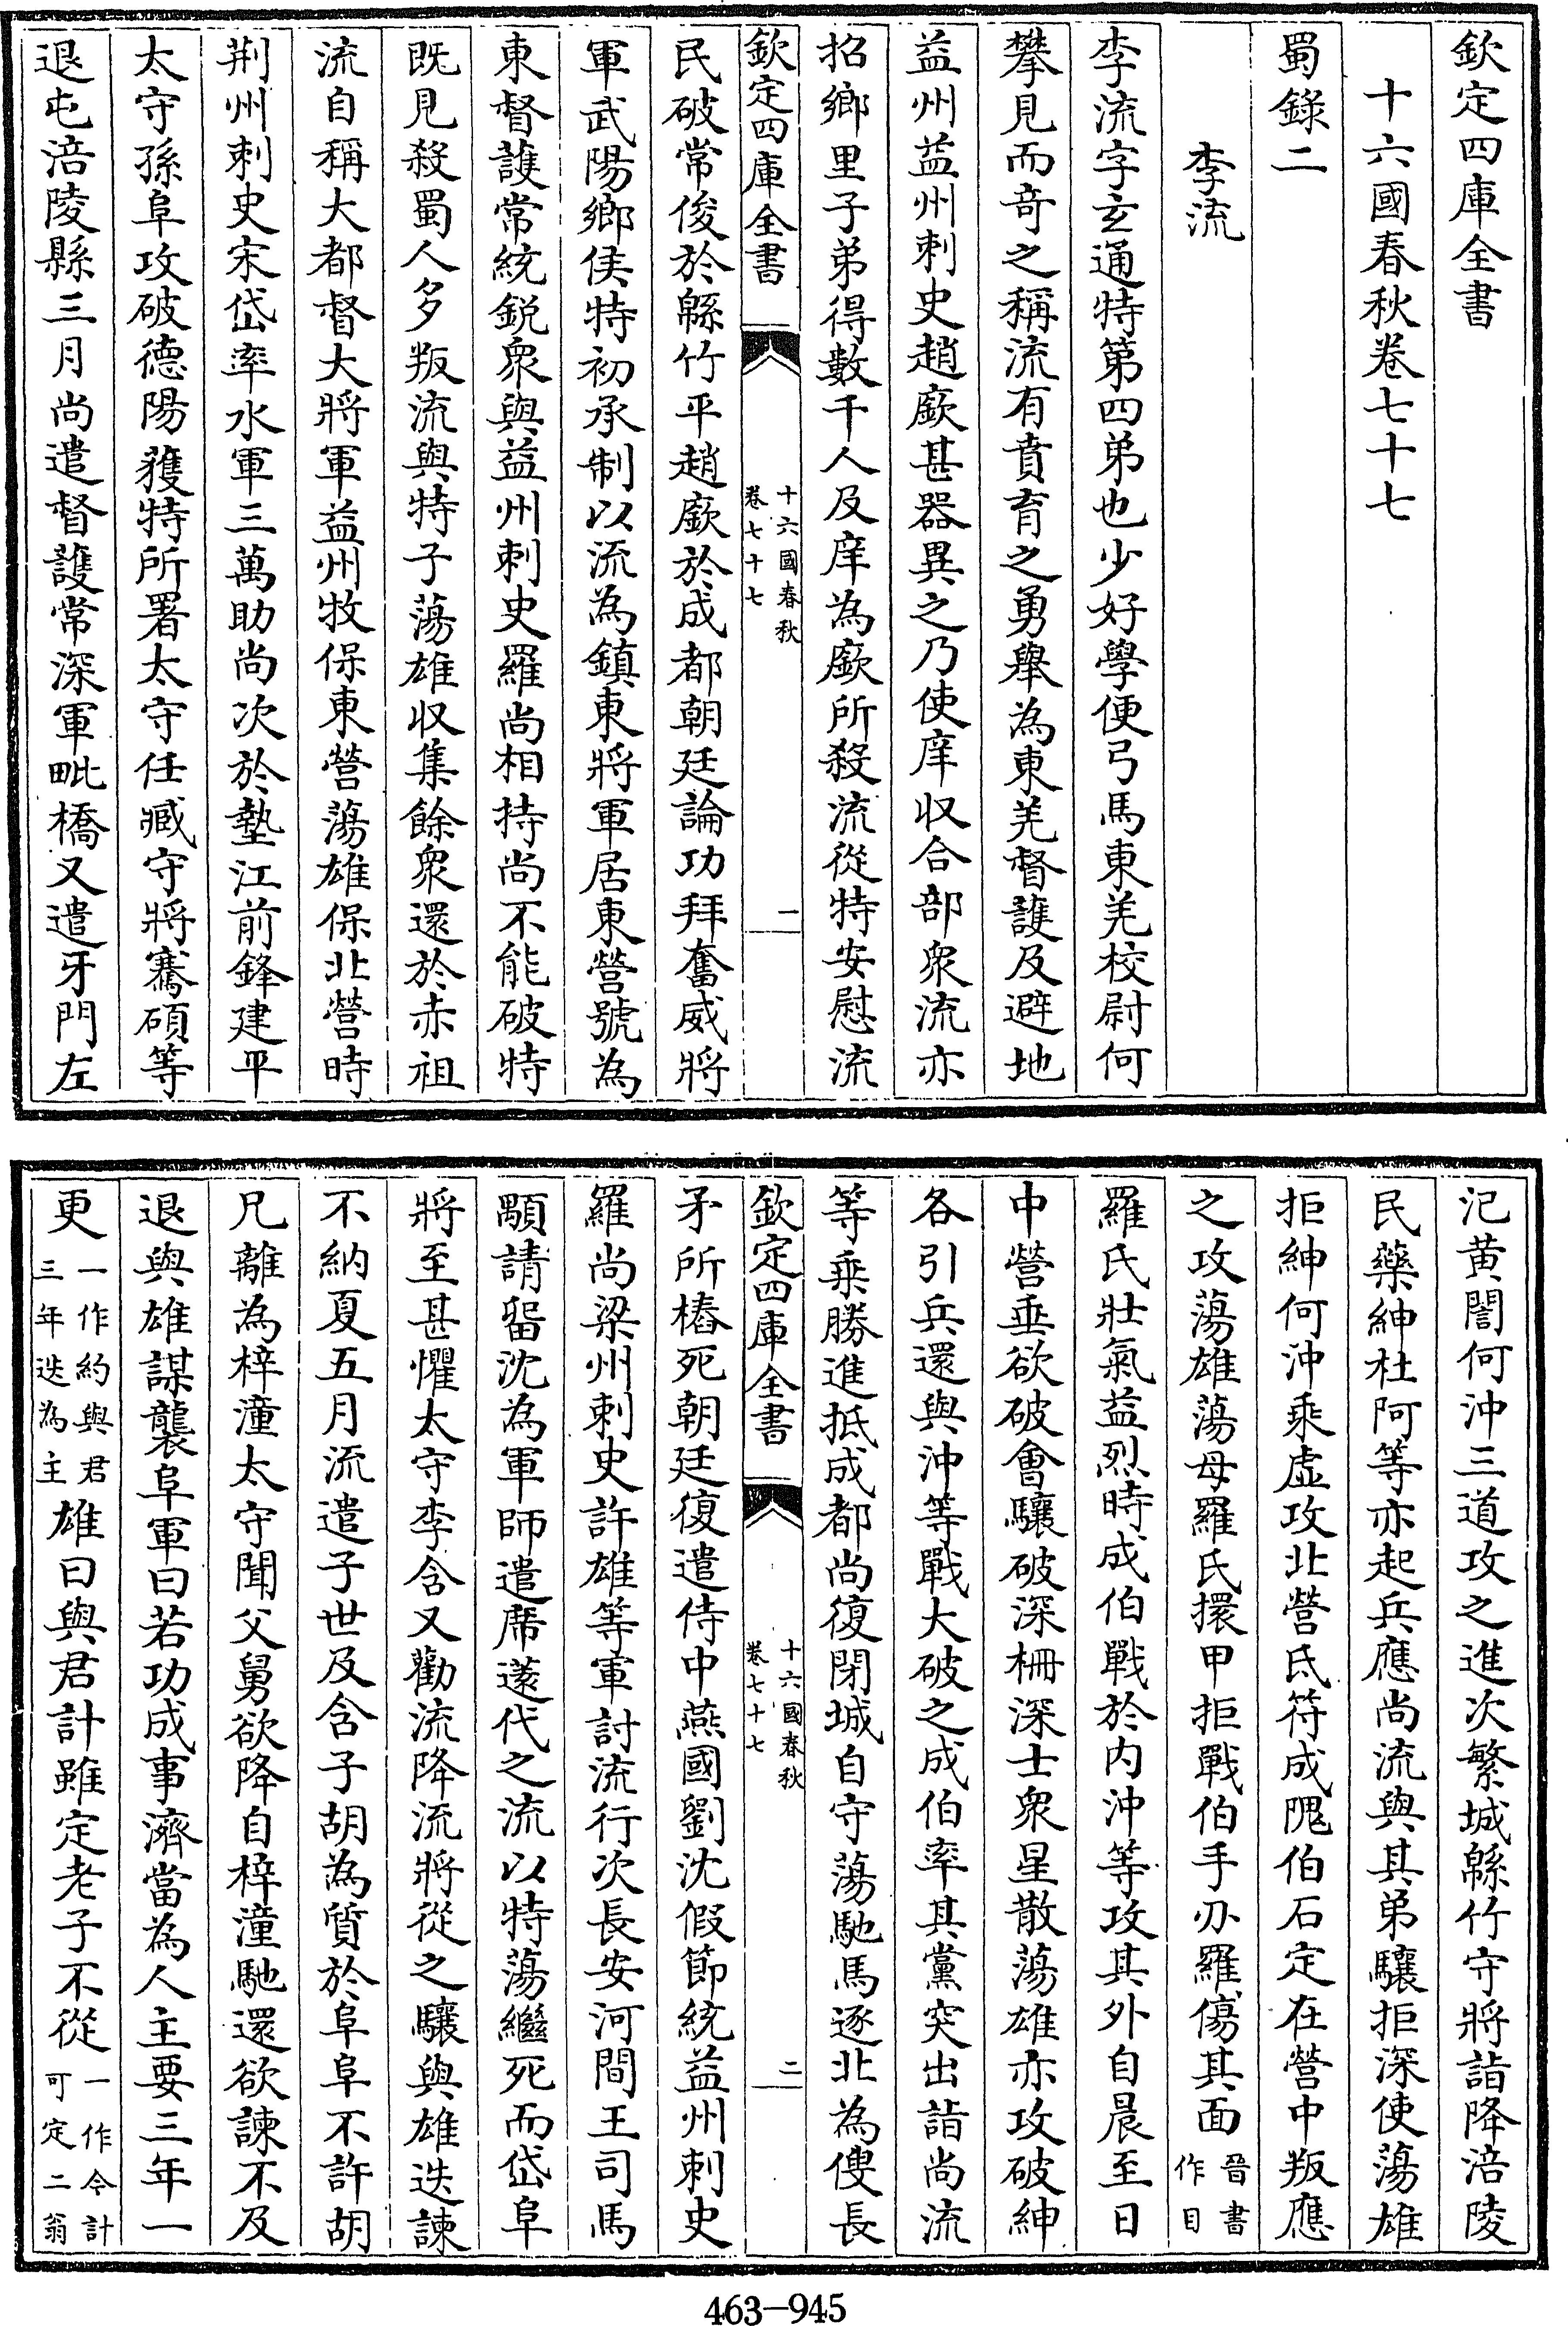 欽定四庫全書
十六國春秋卷七十七
蜀錄二
李流
李流字玄通特第四弟也少好學便弓馬東羌校尉何
攀見而奇之稱流有賁育之勇舉為東羌督護及避地
益州益州刺史趙廞甚器異之乃使庠收合部衆流亦
招鄉里子弟得數千人及庠為廞所殺流從特安慰流
欽定四庫全書
十六國春秋
卷七十七
一
民破常俊於緜竹平趙廞於成都朝廷論功拜奮威將
軍武陽鄉侯特初承制以流為鎮東將軍居東營號為
東督護常統鋭衆與益州刺史羅尚相持尚不能破特
既見殺蜀人多叛流與特子蕩雄収集餘衆還於赤祖
流自稱大都督大將軍益州牧保東營蕩雄保北營時
荆州刺史宋岱率水軍三萬助尚次於墊江前鋒建平
太守孫阜攻破德陽獲特所署太守任臧守將騫碩等
退屯涪陵縣三月尚遣督護常深軍毗橋又遣牙門左
汜黄誾何沖三道攻之進次繁城緜竹守將詣降涪陵
民藥紳杜阿等亦起兵應尚流與其弟驤拒深使蕩雄
拒紳何沖乘虛攻北營氐符成隗伯石定在營中叛應
之攻蕩雄蕩母羅氏擐甲拒戰伯手刃羅傷其面晉書作目
羅氏壯氣益烈時成伯戰於内沖等攻其外自晨至日
中營垂欲破會驤破深柵深士衆星散蕩雄亦攻破紳
各引兵還與沖等戰大破之成伯率其黨突出詣尚流
等乗勝進抵成都尚復閉城自守蕩馳馬逐北為傁長
欽定四庫全書
十六國春秋
卷七十七
二
矛所樁死朝廷復遣侍中燕國劉沈假節統益州刺史
羅尚梁州刺史許雄等軍討流行次長安河間王司馬
顒請留沈為軍師遣席薳代之流以特蕩繼死而岱阜
將至甚懼太守李含又勸流降流將從之驤與雄迭諫
不納夏五月流遣子世及含子胡為質於阜阜不許胡
兄離為梓潼太守聞父舅欲降自梓潼馳還欲諫不及
退與雄謀襲阜軍曰若功成事濟當為人主要三年一
更一作約與君三年迭為主雄曰與君計雖定老子不從一作今計可定二翁
463-945